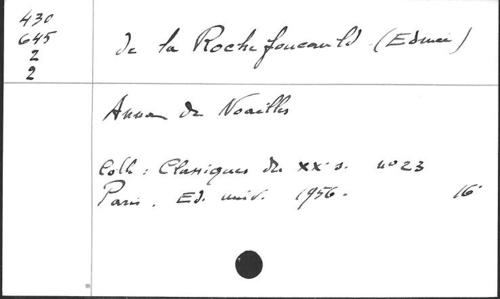 430
645
2
2
de la Rochefoucauld (Edmée)
Anna de Noailles
Coll : Classiques du XXe s. no 23
Paris. Ed. univ. 1956. 16°